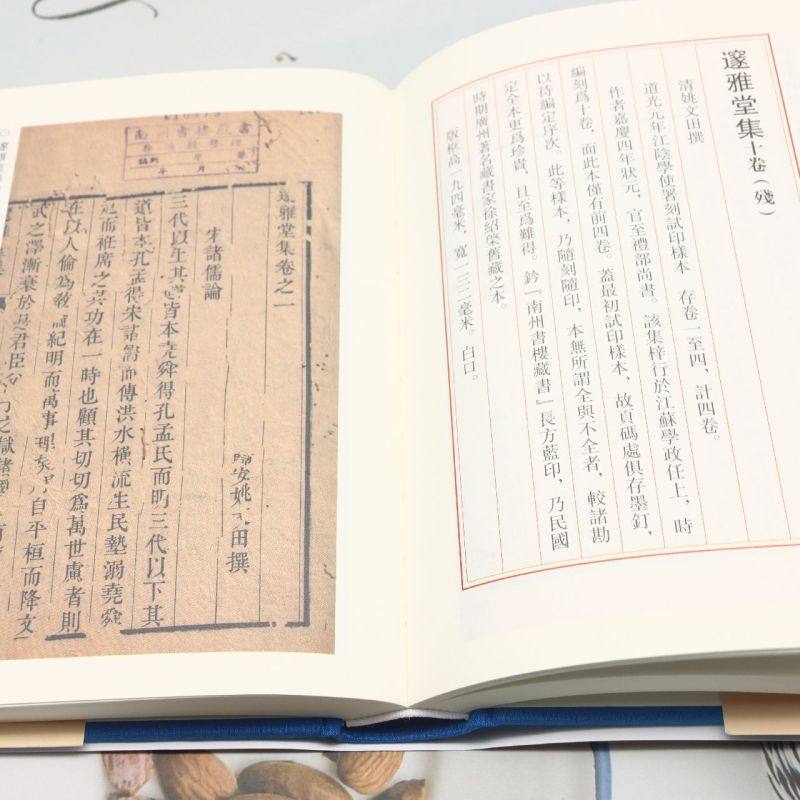 邃雅堂集十卷（殘）
清姚文田撰
道光元年江陰學使署刻試印樣本　存卷一至四，計四卷。
作者嘉慶四年狀元，官至禮部尚書。該集梓行於江蘇學政任上，時
編刻爲十卷，而此本僅有前四卷。蓋最初試印樣本，故頁碼處俱存墨釘，
以待編定序次，此等樣本，乃隨刻隨印，本無所謂全與不全者，較諸勘
定全本更爲珍貴，且至爲難得。鈐『南州書樓藏書』長方藍印，乃民國
時期廣州著名藏書家徐紹棨舊藏之本。
版框高一九四毫米，寬一三二毫米。白口。
邃雅堂集卷之一
歸安姚文田撰
宋諸儒論
三代以上其道皆本堯舜得孔孟氏而明三代以下其
道皆本孔孟得宋諸儒而傳洪水橫流生民墊溺堯舜
是而衽席之其功在一時也顧其切切爲萬世慮者則
在以人倫爲敎 紀明而萬事理矣 自平桓而降文
武之澤漸衰於是君臣